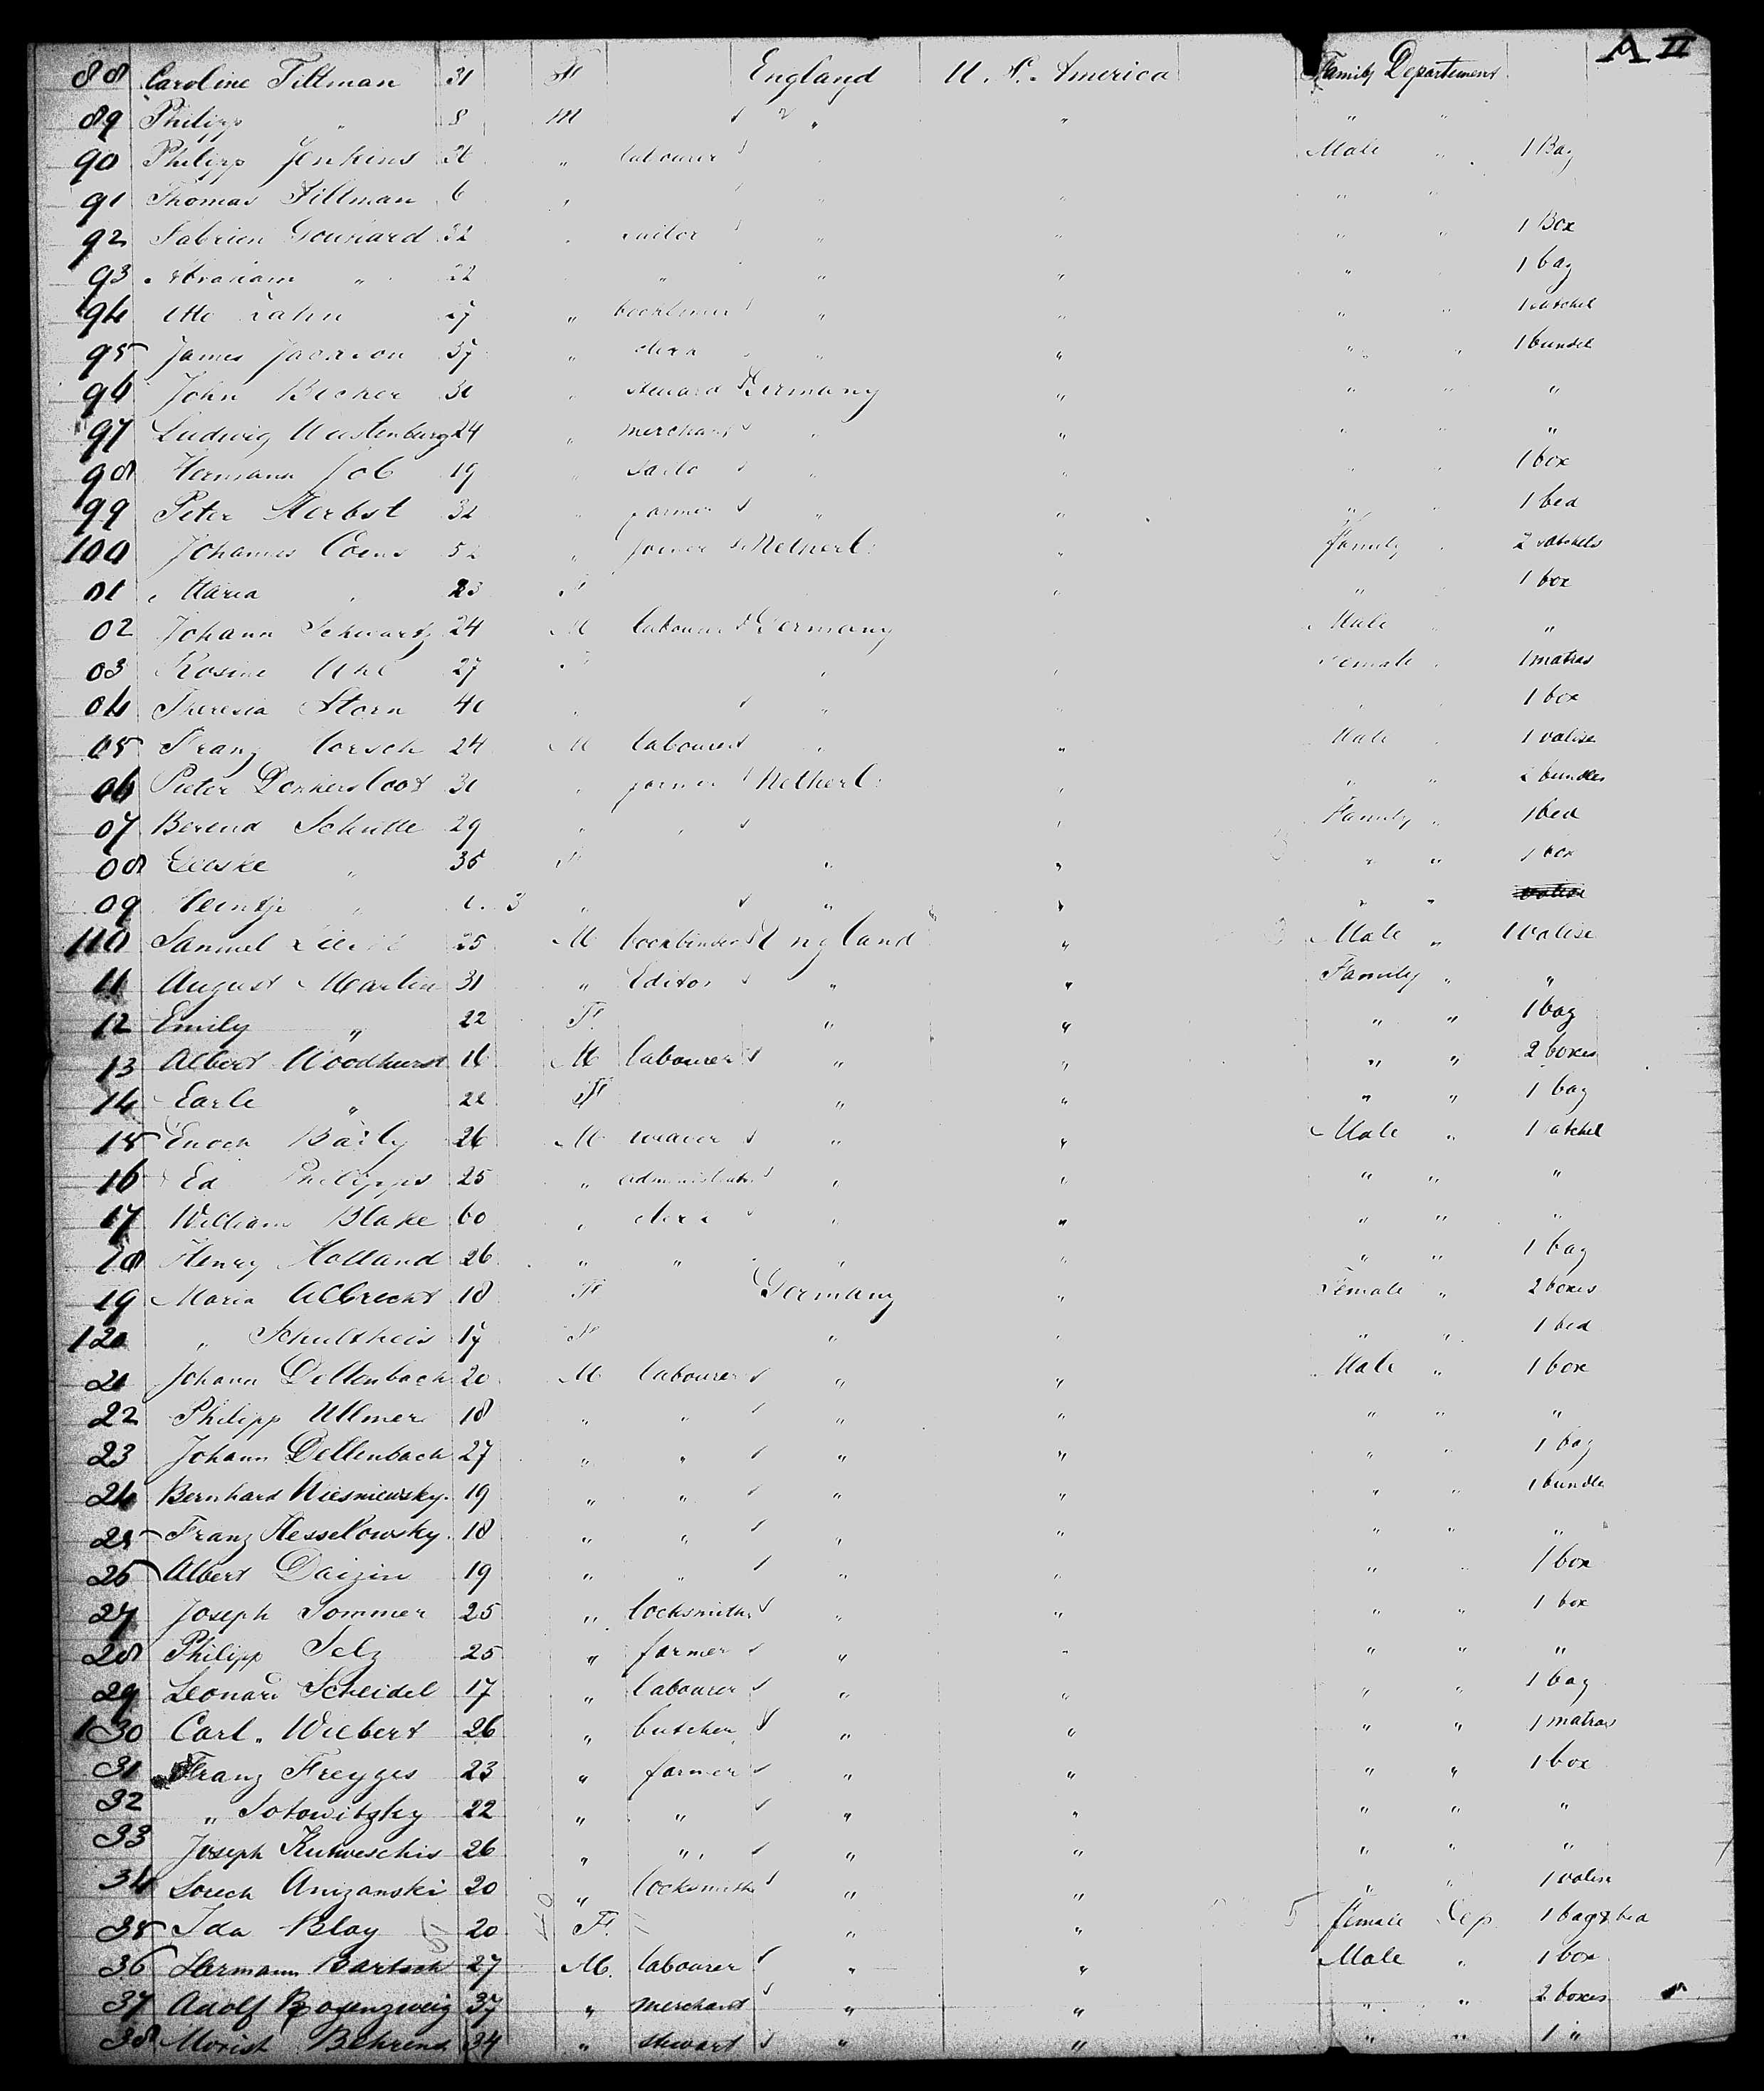 A II
88 Caroline Tillman 31 F England U. S. America Family Departement
89 Philipp " 8 M " " " "
90 Philipp Jenkins 26 " labourer " " Male " 1 Bag
91 Thomas Tillman 6 " " " " "
92 Fabrien Gounard 32 " sailor " " " " 1 Box
93 Abraham " 22 " " " " 1 bag
94 Otto Zahn 27 " bookbinder " " " " 1 satchel
95 James Jackson 37 " clerk " " " " 1 bundel
96 John Becker 30 " steward Germany " " " "
97 Ludwig Wustenburg 24 " merchant " " " " "
98 Hermann Job 19 " sailo " " " " 1 box
99 Peter Herbst 32 " farmer " " " " 1 bed
100 Johannes Coens 52 " joiner Netherl: " Family " 2 satchels
01 Maria " 23 F " " " 1 box
02 Johann Schwartz 24 M labourer Germany Male " "
03 Rosine Uhl 27 F " " Female " 1 matras
04 Theresia Storn 40 " " " " 1 box
05 Franz Corsch 24 M labourer " " Male " 1 valise
06 Pieter Donkersloot 30 " joiner Netherl: " " " 2 bundles
07 Berend Schutte 29 " " " Family " 1 bed
08 Geeske " 35 F " " " " 1 box
09 Meintje " 3 " " " " "
110 Samuel 25 M bookbinder England " Male " 1 Valise
11 August Martin 31 " Editor " " Family " "
12 Emily " 22 F. " " " " 1 bag
13 Albert Woodhurst 16 M labourer " " " " 2 boxes
14 Earle " 22 F " " " " 1 bag
15 Enoch Baily 26 M weaver " " Male " 1 satchel
16 Ed Philipps 25 " administrator " " " " "
17 William Blake 60 " clerk " " " " "
18 Henry Holland 26 " " " " " " 1 bag
19 Maria Albrecht 18 F Germany " Female " 2 boxes
120 " Schultheis 17 F " " " " 1 bed
21 Johann Dellenbach 20 M labourer " " Male " 1 box
22 Philipp Ullmer 18 " " " " " " "
23 Johann Dellenbach 27 " " " " " " 1 bag
24 Bernhard Wiesniewsky. 19 " " " " " " 1 bundle
25 Franz Kesselowsky. 18 " " " " " " "
26 Albert Daizin 19 " " " " " " 1 box
27 Joseph Sommer 25 " locksmith " " " " 1 box
28 Philipp Selz 25 " farmer " " " " "
29 Leonard Scheidel 17 " labourer " " " " 1 bag
130 Carl. Wiebert 26 " butcher " " " " 1 matras
31 Franz Freyges 23 " farmer " " " " 1 box
32 " Sotowitzky 22 " " " " " " "
33 Joseph Kutweschis 26 " " " " " " "
34 Lorech Anizanski 20 " locksmith " " " " 1 valise
35 Ida Blay 20 F. " " 5 female Dep 1 bag & bed
36 Hermann Bartsch 27 M. labourer " " Male " 1 box
37 Adolf Rosenzweig 37 " merchant " " " " 2 boxes
38 Morist Behrend 34 " stewart " " " " 1 "